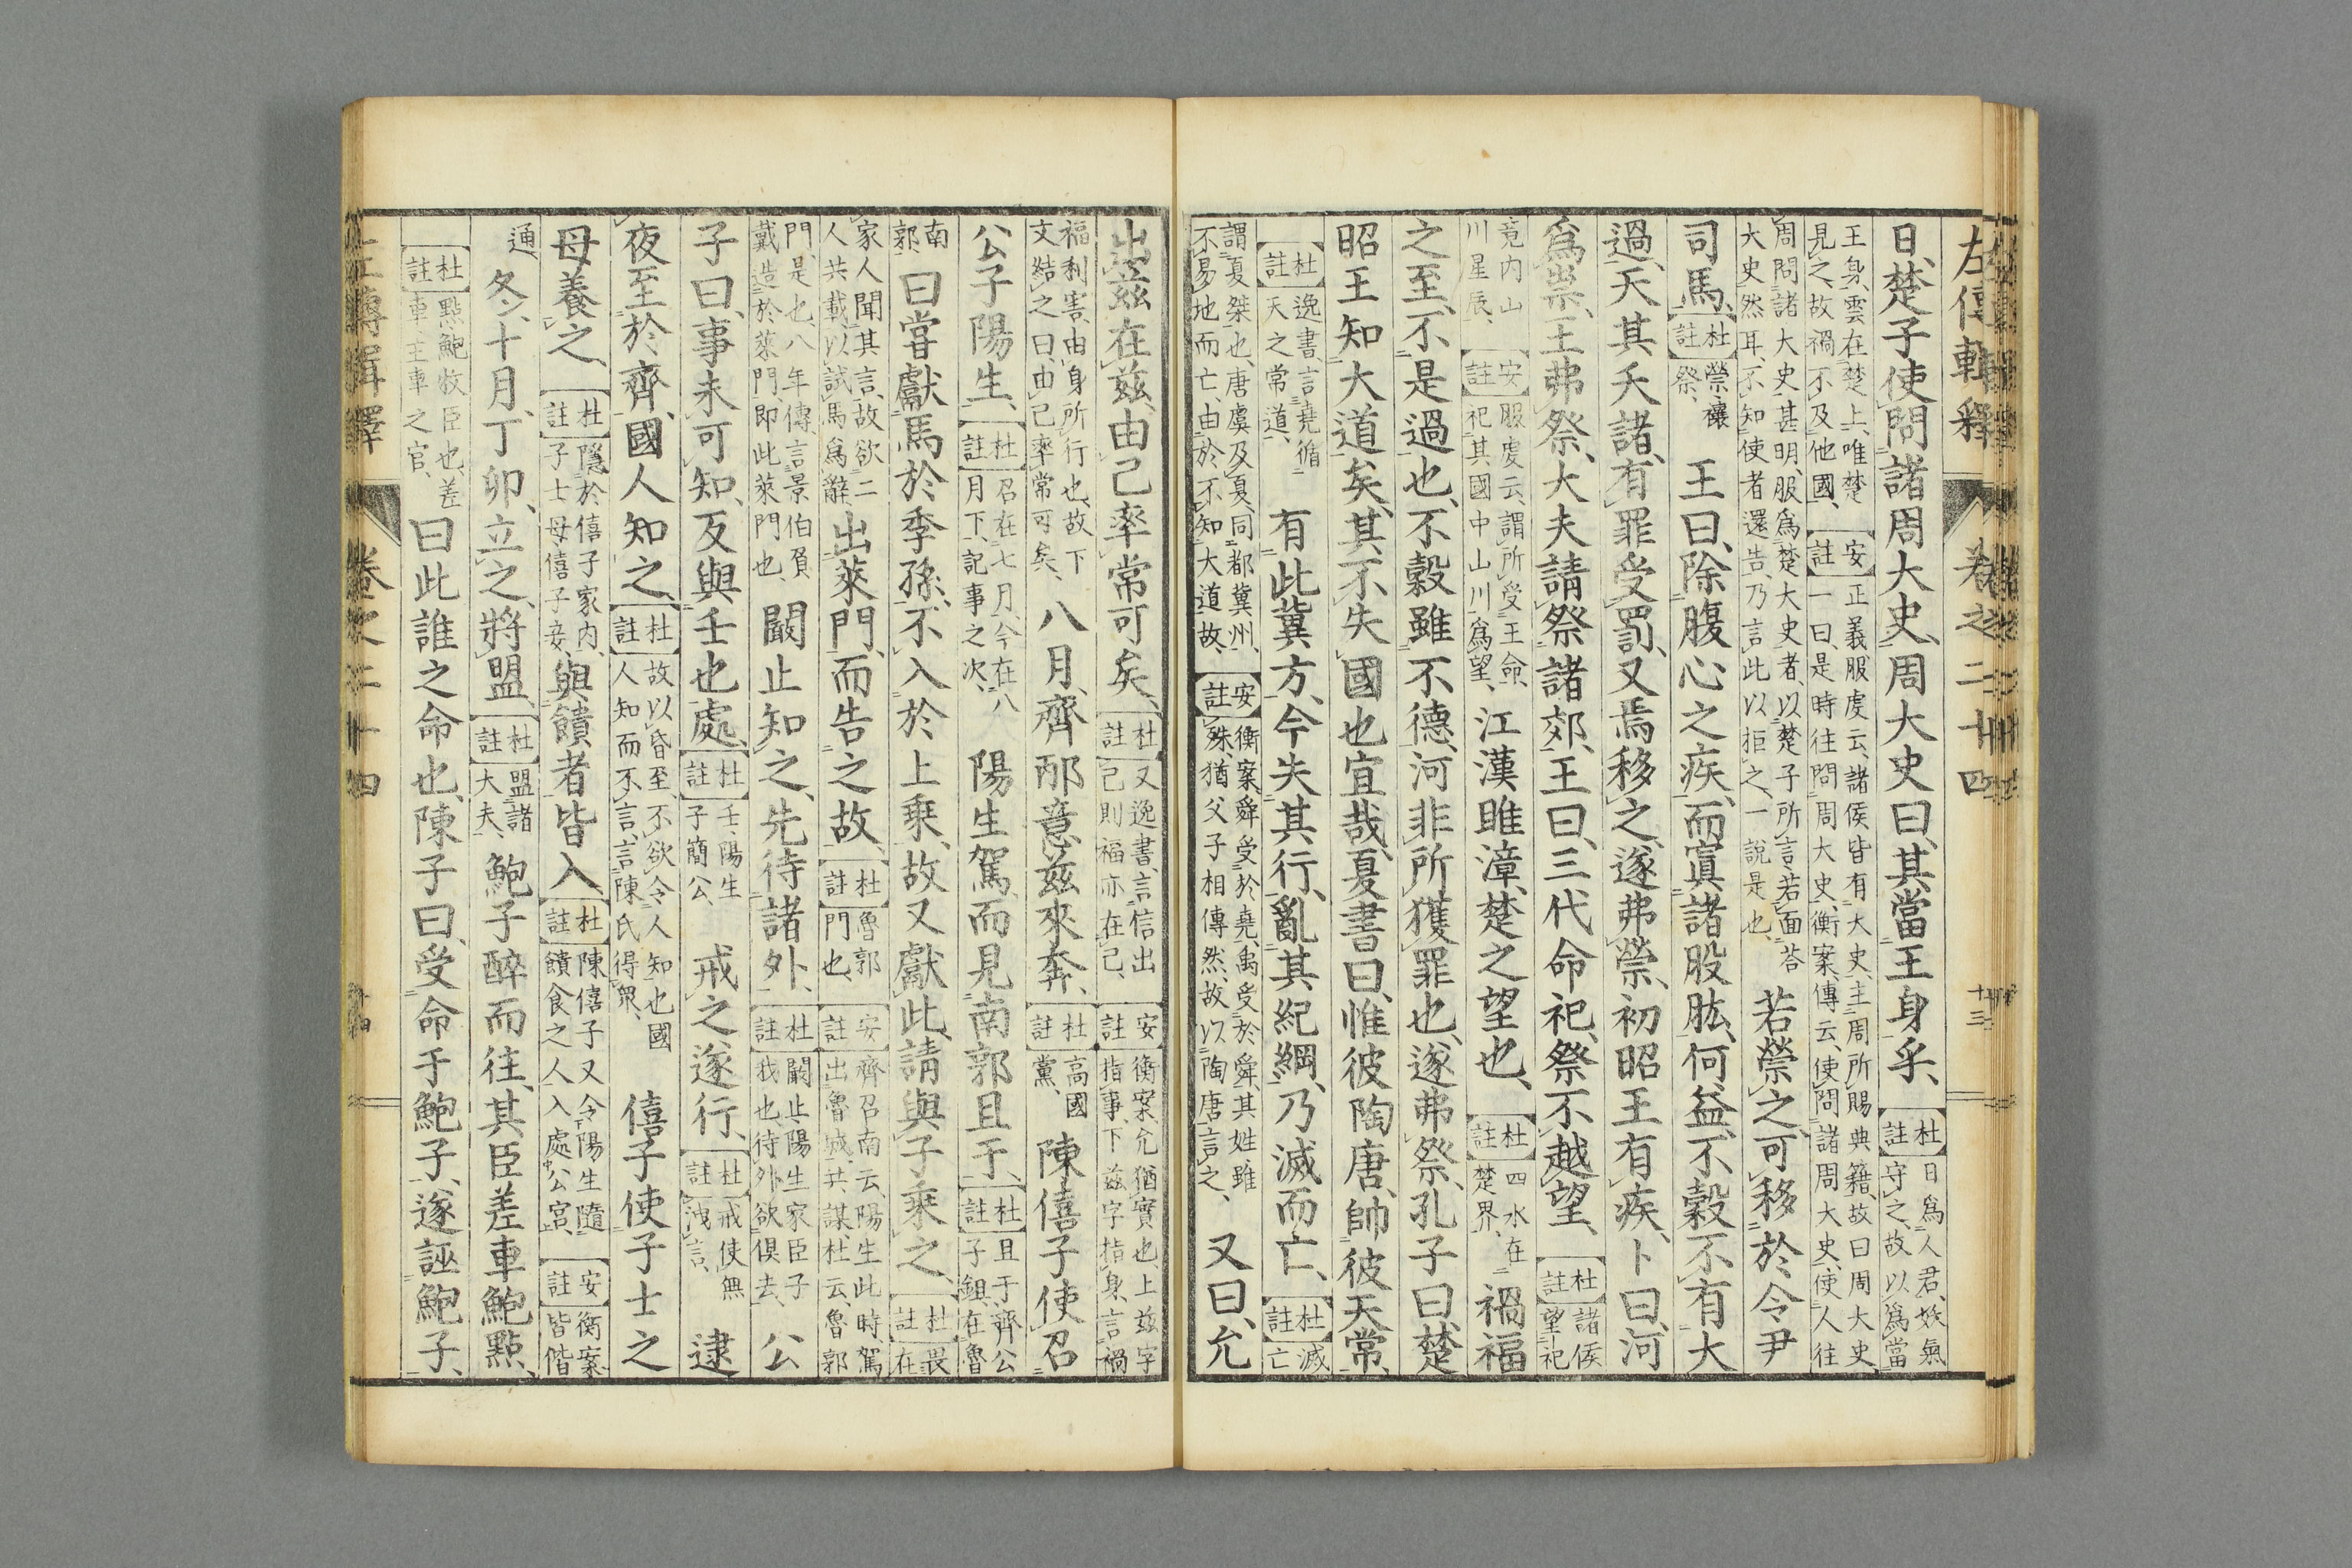 左傳輯釋 卷之二十四 十三
日、楚子使問諸周大史、周大史曰、其當王身乎、杜註日爲人君、妖氣守之、故以爲當
王身、雲在楚上、唯楚見之、故禍不及他國、安註正義服虔云、諸侯皆有大史、主周所賜典籍、故曰周大史、一曰、是時往問周大史、衡案、傳云、使問諸周大史、使人往
周問諸大史甚明、服爲楚大史者、以楚子所言若面荅大史然耳、不知使者還告、乃言此以拒之、一說是也、若禜之、可移於令尹
司馬、杜註禜、禳祭、王曰、除腹心之疾、而寘諸股肱、何益、不穀不有大
過、天其夭諸、有罪受罰、又焉移之、遂弗禜、初昭王有疾、卜曰、河
爲祟、王弗祭、大夫請祭諸郊、王曰、三代命祀、祭不越望、杜註諸侯望祀
竟內山川星辰、安註服虔云、謂所受王命、祀其國中山川爲望、江漢雎漳、楚之望也、杜註四水在楚界、禍福
之至、不是過也、不穀雖不德、河非所獲罪也、遂弗祭、孔子曰、楚
昭王知大道矣、其不失國也宜哉、夏書曰、惟彼陶唐、帥彼天常、
杜註逸書、言堯循天之常道、有此冀方、今失其行、亂其紀綱、乃滅而亡、杜註滅亡
謂夏桀也、唐虞及夏、同都冀州、不易地而亡、由於不知大道故、安註衡案、舜受於堯、禹受於舜、其姓雖殊、猶父子相傳然、故以陶唐言之、又曰、允
出茲在茲、由己率常可矣、杜註又逸書、言信出己則福亦在己、安註衡案、允猶實也、上茲字指事、下茲字指身、言禍
福利害、由身所行也、故下文結之曰由己率常可矣、八月、齊邴意茲來奔、杜註高國黨、陳僖子使召
公子陽生、杜註召在七月、今在八月下、記事之次、陽生駕、而見南郭且于、杜註且于、齊公子鉏、在魯
南郭曰嘗獻馬於季孫、不入於上乘、故又獻此、請與子乘之、杜註畏在
家人聞其言、故欲二人共載、以試馬爲辭、出萊門、而告之故、杜註魯郭門也、安註齊召南云、陽生此時、駕出魯城、共謀、杜云、魯郭
門、是也、八年傳言景伯負載造於萊門、即此萊門也、闞止知之、先待諸外、杜註闞止陽生家臣子我也、待外欲俱去、公
子曰、事未可知、反與壬也處、杜註壬、陽生子簡公、戒之、遂行、杜註戒使無洩言、逮
夜至於齊、國人知之、杜註故以昏至、不欲令人知也、國人知而不言、言陳氏得衆、僖子使子士之
母養之、杜註隱於僖子家內、子士母、僖子妾、與饋者皆入、杜註陳僖子又令陽生隨饋食之人、入處公宮、安註衡案、皆偕
通、冬、十月、丁卯、立之、將盟、杜註盟諸大夫、鮑子醉而往、其臣差車鮑點、
杜註點鮑牧臣也、差車主車之官、曰此誰之命也、陳子曰、受命于鮑子、遂誣鮑子、
左傳輯釋 卷之二十四